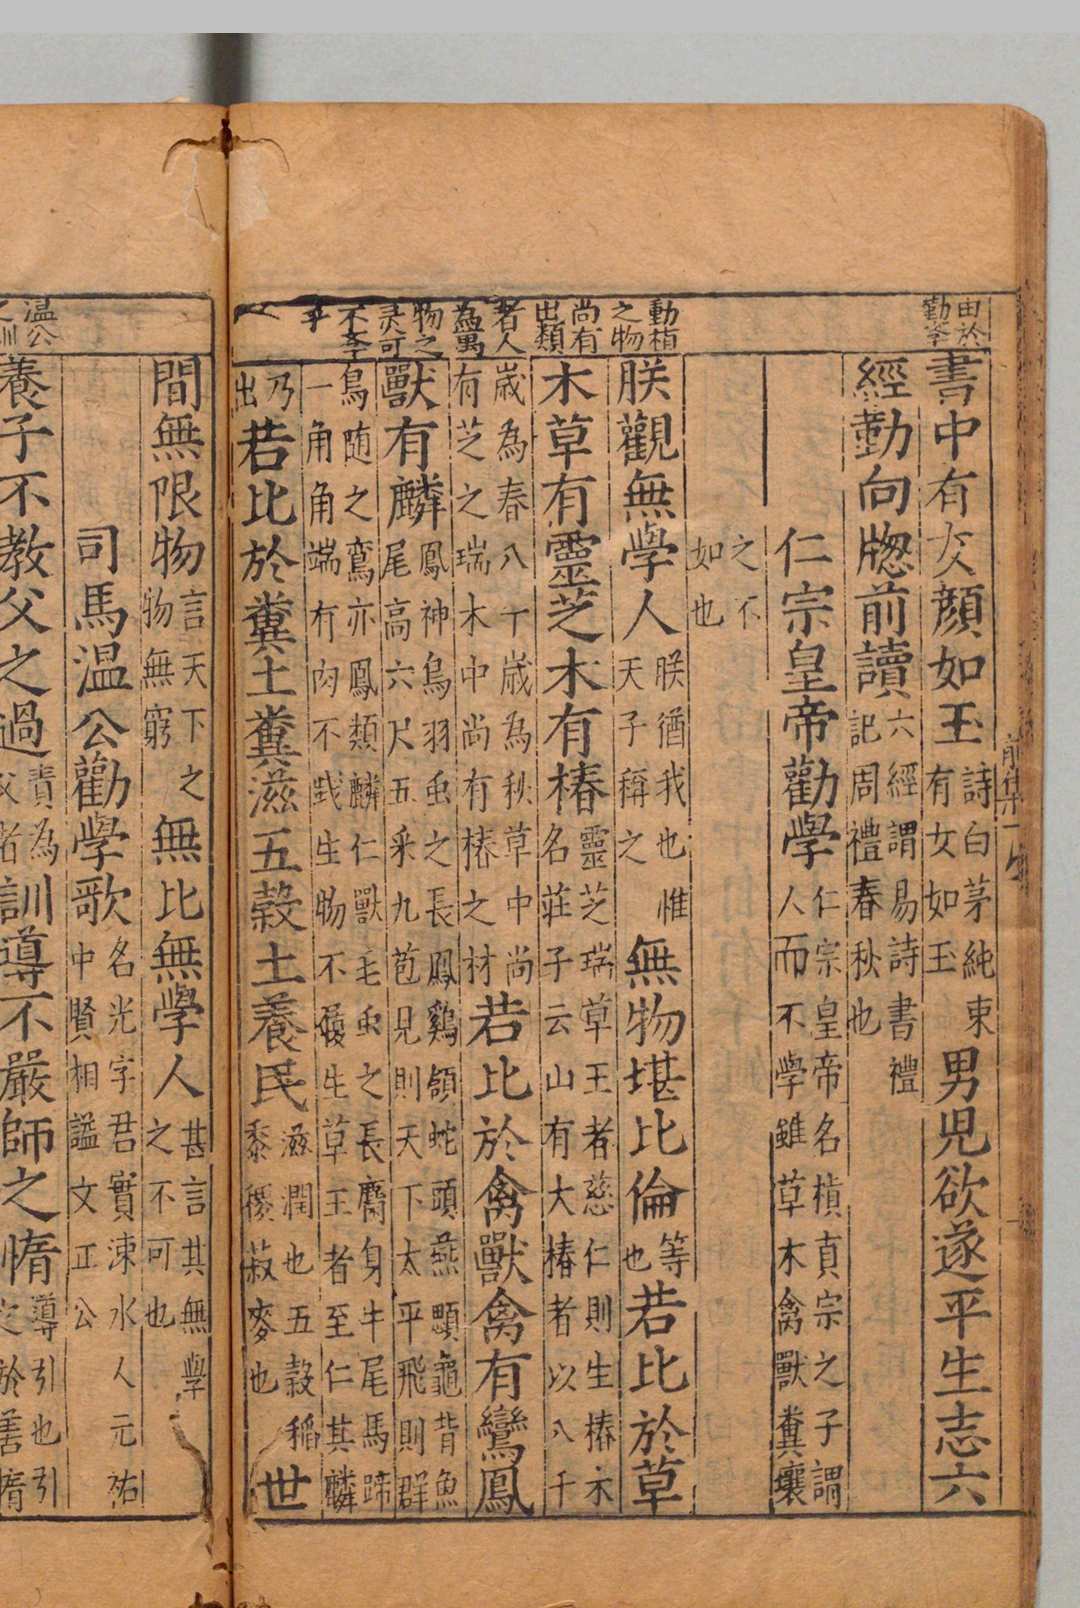 由於
勤孝
書中有女顔如玉詩白茅純東有女如玉男兒欲遂平生志六
經勤向牎前讀六經謂易詩書禮記周禮春秋也
仁宗皇帝勸學仁宗皇帝名槙真宗之子謂人而不學雖草木禽獸糞壤
之不如也
動植
之物
尚有
出類
者人
為萬
物之
灵可
不孝
乎
朕觀無學人朕猶我也惟天子稱之無物堪比倫等也若比於草
木草有靈芝木有椿靈芝瑞草王者慈仁則生椿木名莊子云山有大椿者以八千
歲為春八千歲為秋草中尚有芝之瑞木中尚有椿之材若比於禽獸禽有鸞鳳
獸有麟鳳神鳥羽虫之長鳳鷄頷蛇頭燕顋龜背魚尾高六尺五采九苞見則天下太平飛則群
鳥随之鸞亦鳳類麟仁獸毛虫之長麕身牛尾馬蹄一角角端有肉不践生物不履生草王者至仁其麟
乃出若比於糞土糞滋五穀土養民滋潤也五穀稻黍稷菽麥也世
間無限物言天下之物無窮無比無學人甚言其無學之不可也
司馬温公勸學歌名光字君實涑水人元祐中賢相謚文正公
温公
之訓
養子不教父之過責為父者訓導不嚴師之惰導引也引之於善惰
前集一